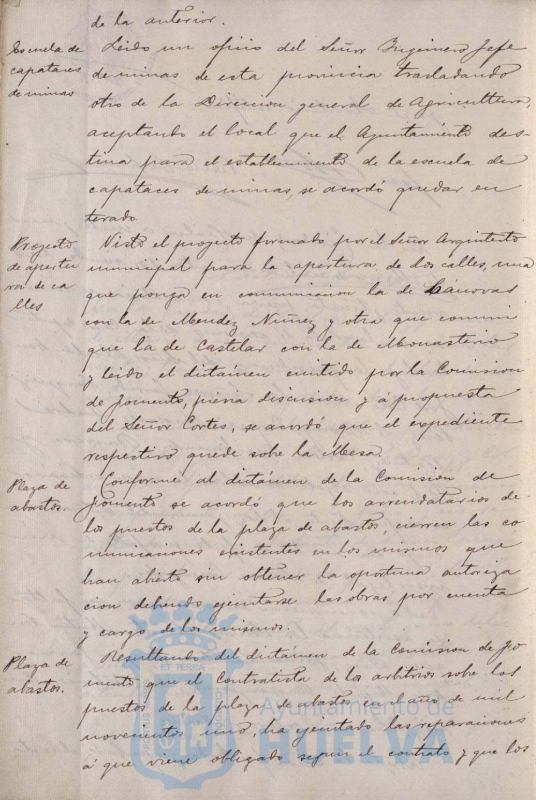 de la anterior.
Escuela de
capataces
de minas
Leido un oficio del Señor Ingeniero Jefe
de minas de esta provincia trasladando
otro de la Direccion general de Agricultura,
aceptando el local que el Ayuntamiento des-
tina para el establecimiento de la escuela de
capataces de minas, se acordó quedar en
terado.
Proyecto
de apertu
ra de ca
lles
Visto el proyecto formado por el Señor Arquitecto
municipal para la apertura de dos calles, una
que ponga en comunicacion la de Cánovas
con la de Mendez Nuñez y otra que comuni
que la de Castelar con la de Monasterio
y leido el dictámen emitido por la Comision
de Fomento, prévia discusion y á propuesta
del Señor Cortes, se acordó que el expediente
respectivo quede sobre la Mesa.
Plaza de
abastos.
Conforme al dictámen de la Comision de
Fomento se acordó que los arrendatarios de
los puestos de la plaza de abastos, cierren las co
municaciones existentes en los mismos que
han abierto sin obtener la oportuna autoriza
cion debiendo ejecutarse las obras por cuenta
y cargo de los mismos.
Plaza de
abastos.
Resultando del dictámen de la Comision de Fo
mento que el Contratista de los arbitrios sobre los
puestos de la plaza de abastos en el año de mil
novecientos uno, ha ejecutado las reparaciones
á que viene obligado segun el contrato y que los
Ayuntamiento de
HUELVA